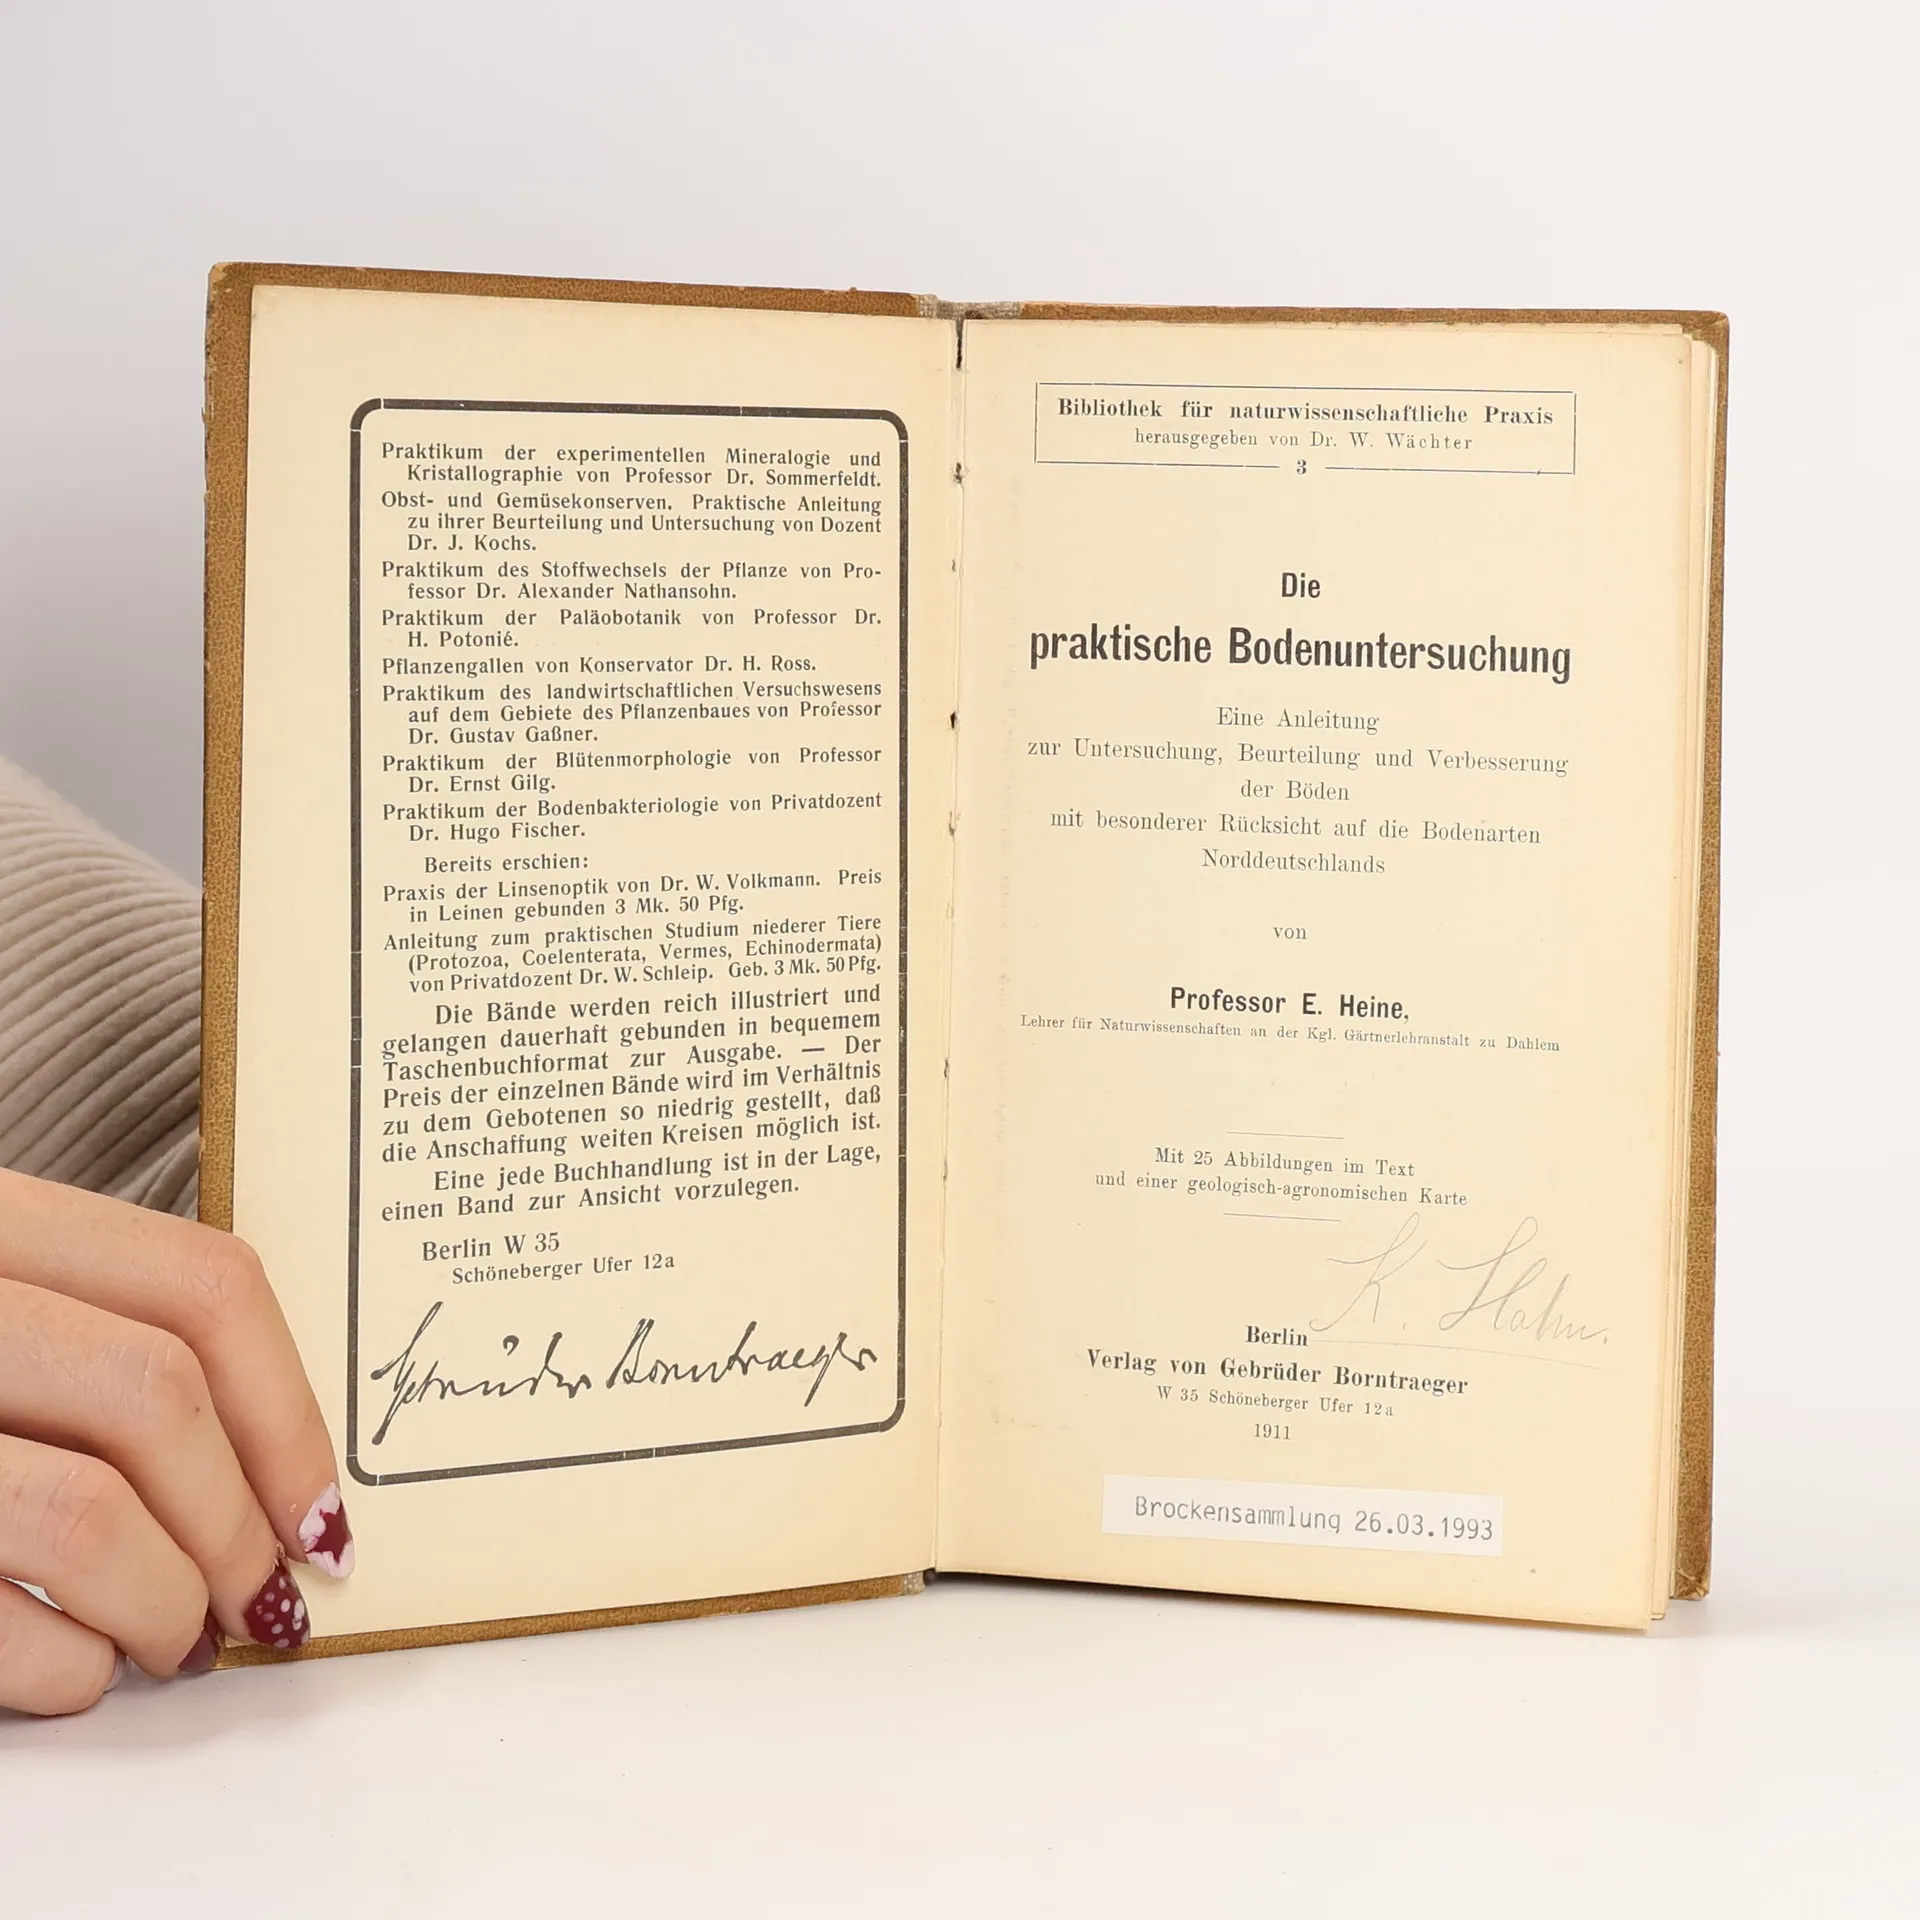 Praktikum der experimentellen Mineralogie und
Kristallographie von Professor Dr. Sommerfeldt.
Obst- und Gemüsekonserven. Praktische Anleitung
zu ihrer Beurteilung und Untersuchung von Dozent
Dr. J. Kochs.
Praktikum des Stoffwechsels der Pflanze von Pro-
fessor Dr. Alexander Nathansohn.
Praktikum der Paläobotanik von Professor Dr.
H. Potonié.
Pflanzengallen von Konservator Dr. H. Ross.
Praktikum des landwirtschaftlichen Versuchswesens
auf dem Gebiete des Pflanzenbaues von Professor
Dr. Gustav Gaßner.
Praktikum der Blütenmorphologie von Professor
Dr. Ernst Gilg.
Praktikum der Bodenbakteriologie von Privatdozent
Dr. Hugo Fischer.
Bereits erschien:
Praxis der Linsenoptik von Dr. W. Volkmann. Preis
in Leinen gebunden 3 Mk. 50 Pfg.
Anleitung zum praktischen Studium niederer Tiere
(Protozoa, Coelenterata, Vermes, Echinodermata)
von Privatdozent Dr. W. Schleip. Geb. 3 Mk. 50 Pfg.
Die Bände werden reich illustriert und
gelangen dauerhaft gebunden in bequemem
Taschenbuchformat zur Ausgabe. — Der
Preis der einzelnen Bände wird im Verhältnis
zu dem Gebotenen so niedrig gestellt, daß
die Anschaffung weiten Kreisen möglich ist.
Eine jede Buchhandlung ist in der Lage,
einen Band zur Ansicht vorzulegen.
Berlin W 35
Schöneberger Ufer 12a
Gebrüder Borntraeger
Bibliothek für naturwissenschaftliche Praxis
herausgegeben von Dr. W. Wächter
3
Die
praktische Bodenuntersuchung
Eine Anleitung
zur Untersuchung, Beurteilung und Verbesserung
der Böden
mit besonderer Rücksicht auf die Bodenarten
Norddeutschlands
von
Professor E. Heine,
Lehrer für Naturwissenschaften an der Kgl. Gärtnerlehranstalt zu Dahlem
Mit 25 Abbildungen im Text
und einer geologisch-agronomischen Karte
K. Hahn.
Berlin
Verlag von Gebrüder Borntraeger
W 35 Schöneberger Ufer 12a
1911
Brockensammlung 26.03.1993